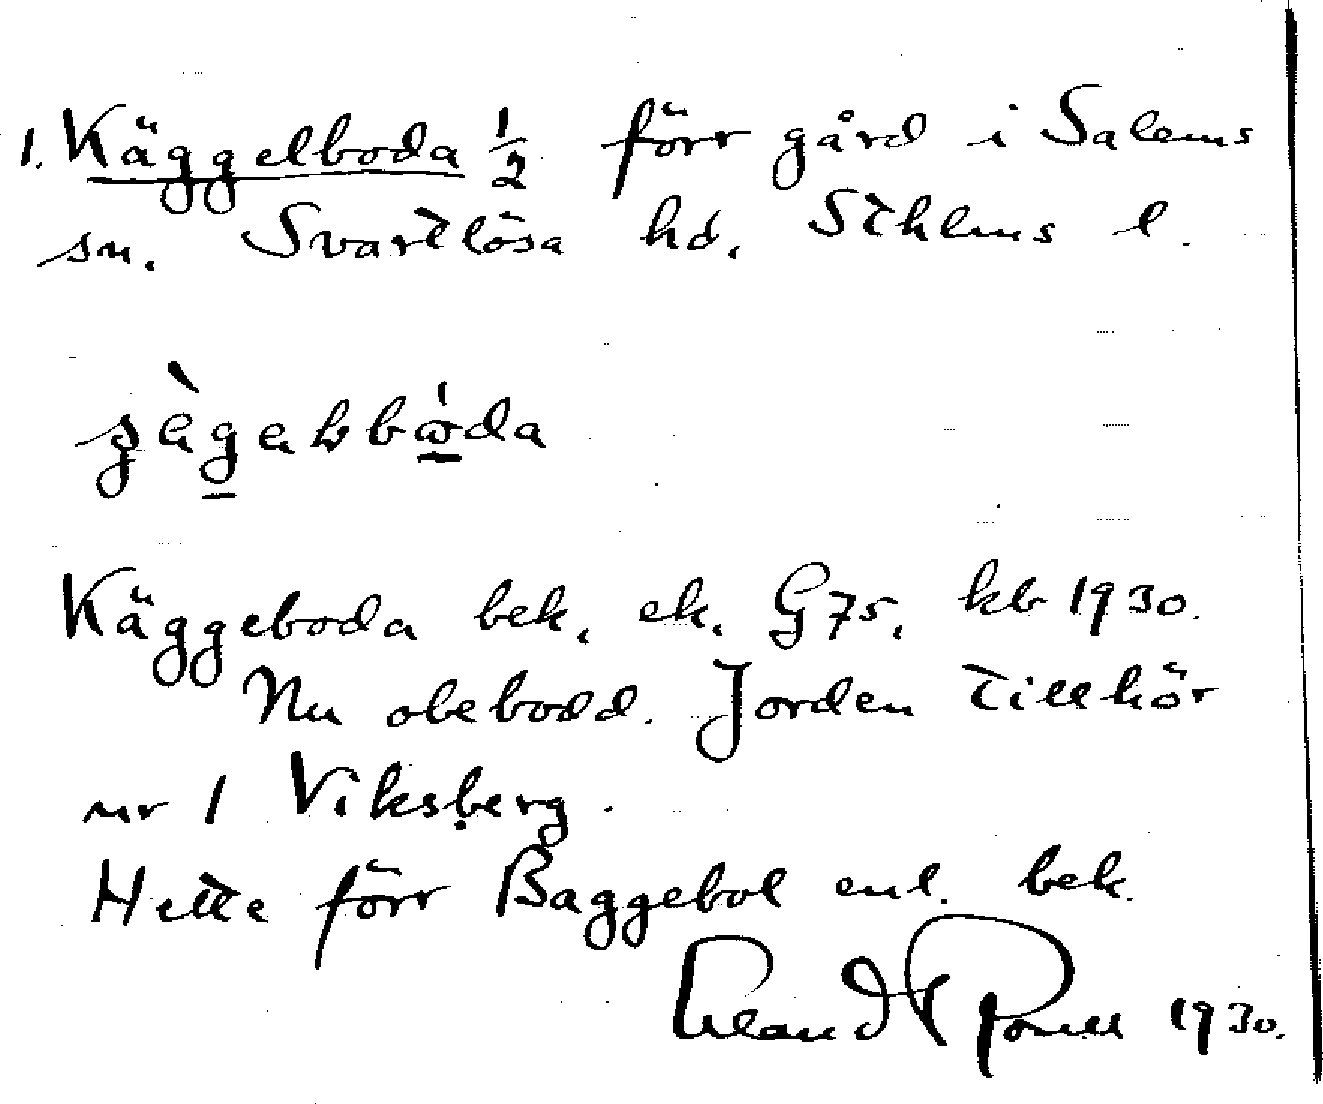 1. Käggelboda 1/2 förr gård i Salems
sn. Svartlösa hd. Sthlms l.
Käggeboda bek. ek. G75. kb 1930.
Nu obebodd. Jorden tillhör
nr 1 Viksberg.
Hette förr Baggebol enl. bek.
1930.